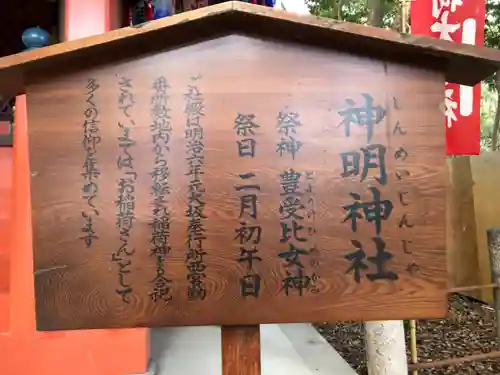 しんめいじんじゃ
神明神社
祭神 豊受比女神
とようけひめのかみ
祭日 二月初午日
ご社殿は明治六年元大坂産行所西
番所敷地内から移転され稲荷神も合祀
されて、いまでは「お稲荷さん」として
多くの信仰を集めています